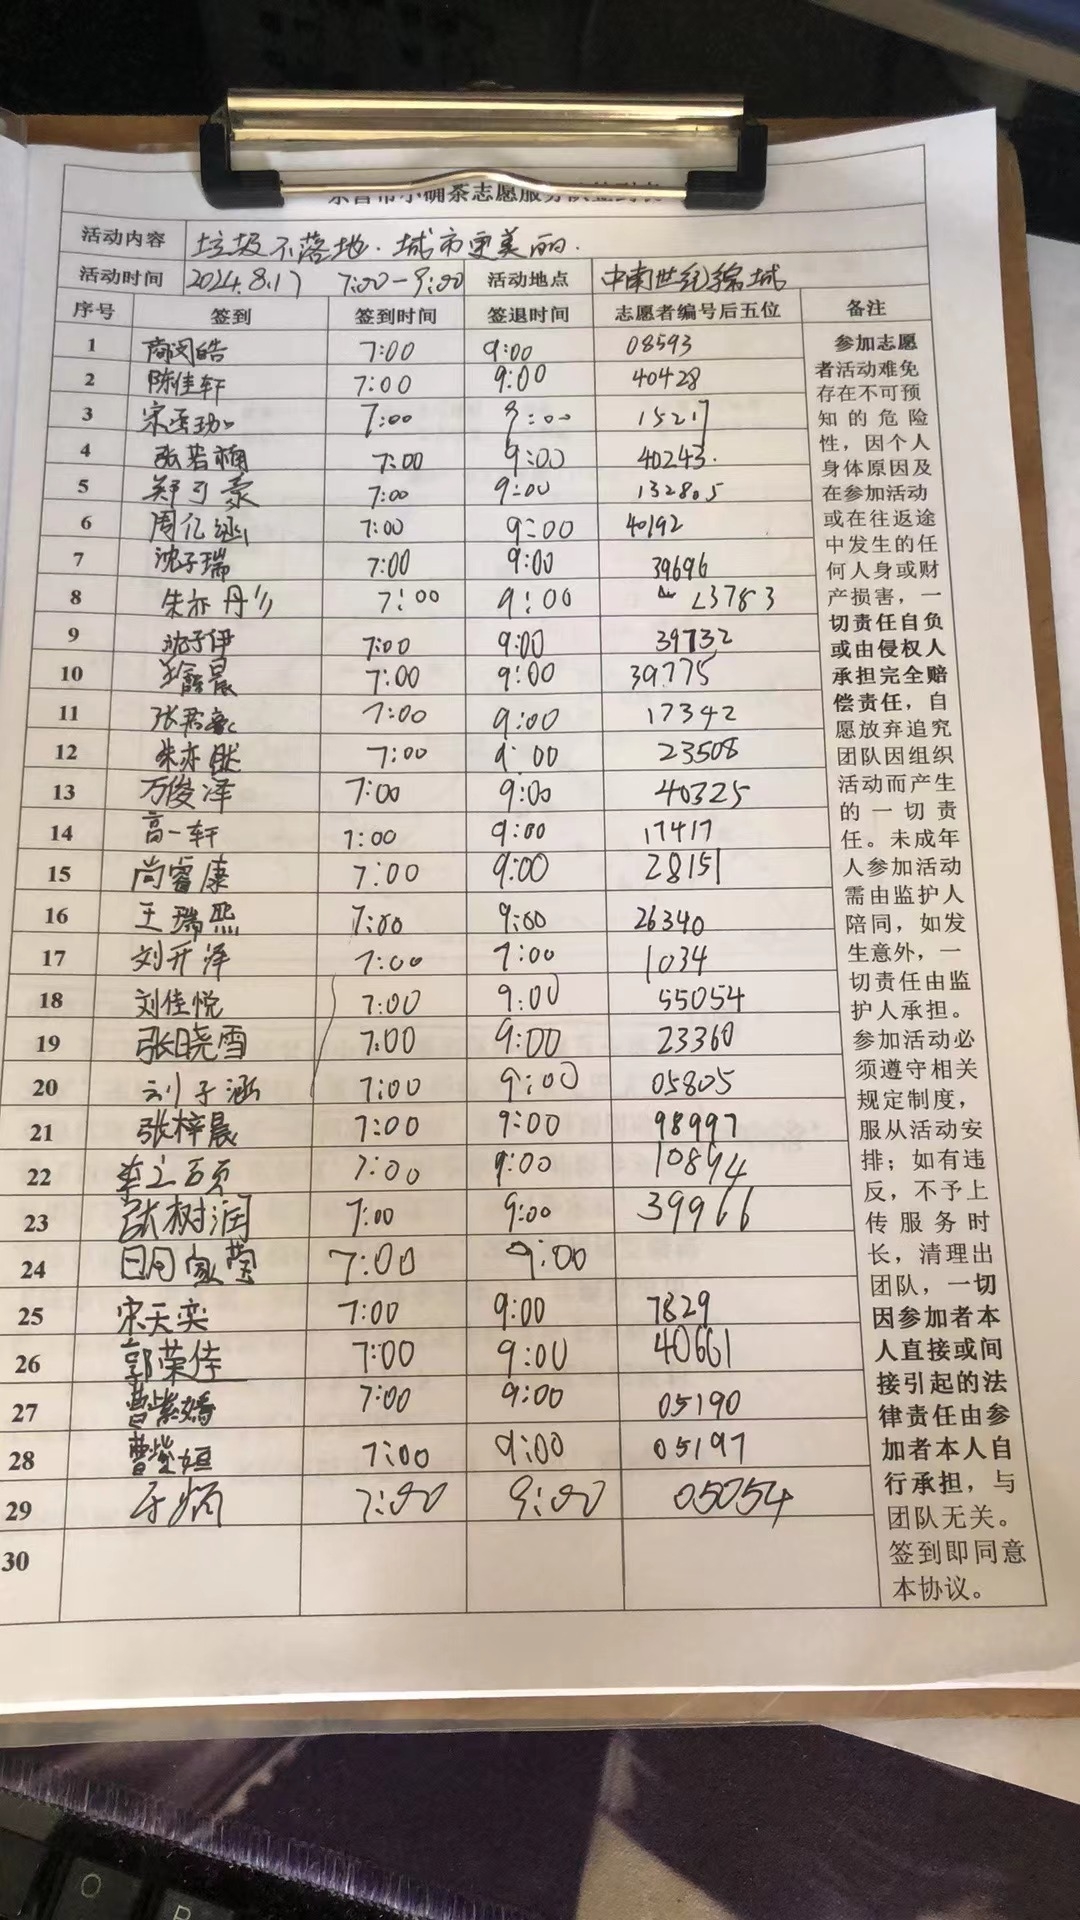 小确茶志愿服务队签到表
活动内容 垃圾不落地·城市更美丽.
活动时间 2024.8.17 7:00-9:00 活动地点 中南世纪锦城
序号 签到 签到时间 签退时间 志愿者编号后五位 备注
1 皓 7:00 9:00 08593
2 陈佳轩 7:00 9:00 40428
3 宋 7:00 9:00 15217
4 张若楠 7:00 9:00 40243.
5 郑引豪 7:00 9:00 132805
6 周亿涵 7:00 9:00 40192
7 沈子瑞 7:00 9:00 39696
8 朱亦丹 7:00 9:00 23783
9 沈子伊 7:00 9:00 39732
10 晨 7:00 9:00 39775
11 张君 7:00 9:00 17342
12 朱亦然 7:00 9:00 23508
13 万俊泽 7:00 9:00 40325
14 高一轩 7:00 9:00 17417
15 尚睿康 7:00 9:00 28151
16 王瑞熙 7:00 9:00 26340
17 刘开泽 7:00 7:00 1034
18 刘佳悦 7:00 9:00 55054
19 张晓雪 7:00 9:00 23360
20 刘子涵 7:00 9:00 05805
21 张梓晨 7:00 9:00 98997
22 7:00 9:00 10894
23 张树润 7:00 9:00 39966
24 7:00 9:00
25 宋天奕 7:00 9:00 7829
26 郭荣佳 7:00 9:00 40661
27 曹紫嫣 7:00 9:00 05190
28 曹紫姮 7:00 9:00 05197
29 于炳 7:00 9:00 05054
30
参加志愿
者活动难免
存在不可预
知的危险
性，因个人
身体原因及
在参加活动
或在往返途
中发生的任
何人身或财
产损害，一
切责任自负
或由侵权人
承担完全赔
偿责任，自
愿放弃追究
团队因组织
活动而产生
的一切责
任。未成年
人参加活动
需由监护人
陪同，如发
生意外，一
切责任由监
护人承担。
参加活动必
须遵守相关
规定制度，
服从活动安
排；如有违
反，不予上
传服务时
长，清理出
团队，一切
因参加者本
人直接或间
接引起的法
律责任由参
加者本人自
行承担，与
团队无关。
签到即同意
本协议。
O
P